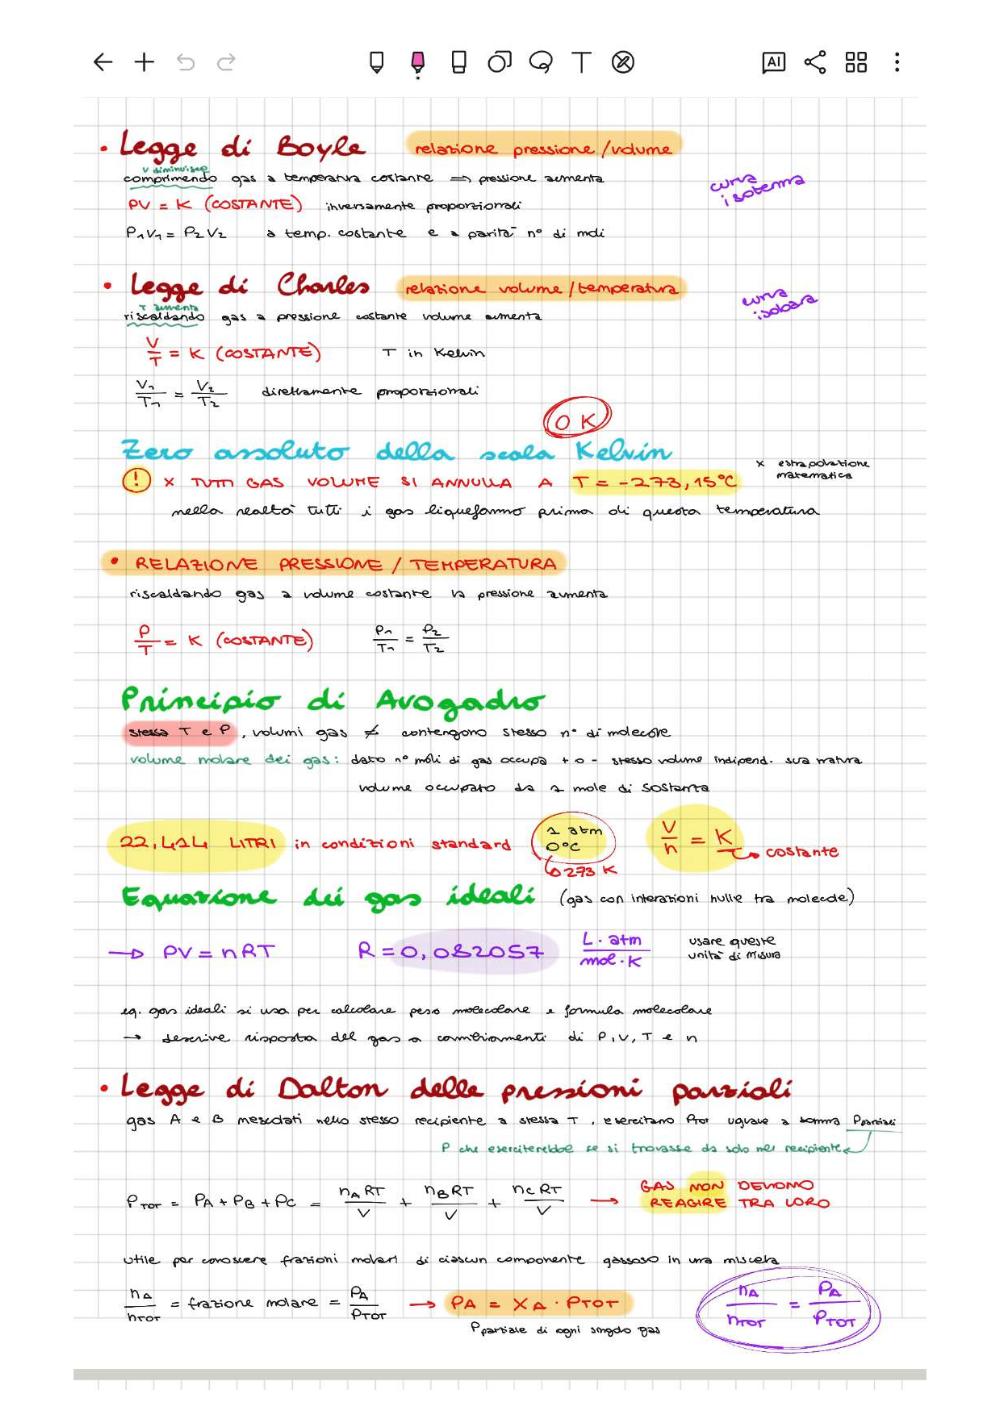 AI
T
• Legge di Boyle relazione pressione/volume
V diminuisce
comprimendo gas a temperatura costante => pressione aumenta
curva isoterma
PV = K (COSTANTE) inversamente proporzionali
P₁V₁ = P₂V₂ a temp. costante e a parità n° di moli
• Legge di Charles relazione volume/temperatura
T aumenta
riscaldando gas a pressione costante volume aumenta
curva isobara
V/T = K (COSTANTE) T in Kelvin
V₁/T₁ = V₂/T₂ direttamente proporzionali
0 K
Zero assoluto della scala Kelvin
! x TUTTI GAS VOLUME SI ANNULLA A T = -273,15°C
x estrapolazione matematica
nella realtà tutti i gas liquefanno prima di questa temperatura
• RELAZIONE PRESSIONE / TEMPERATURA
riscaldando gas a volume costante la pressione aumenta
P/T = K (COSTANTE) P₁/T₁ = P₂/T₂
Principio di Avogadro
stessa T e P, volumi gas ≠ contengono stesso n° di molecole
volume molare dei gas: dato n° moli di gas occupa + o - stesso volume indipend. sua natura
volume occupato da 1 mole di sostanza
22,414 LITRI in condizioni standard 1 atm 0°C V/n = K → costante
↳ 273 K
Equazione dei gas ideali (gas con interazioni nulle tra molecole)
→ PV = nRT R = 0,082057 L·atm/mol·K usare queste unità di misura
eq. gas ideali si usa per calcolare peso molecolare e formula molecolare
→ descrive risposta del gas a cambiamenti di P, V, T e n
• Legge di Dalton delle pressioni parziali
gas A e B mescolati nello stesso recipiente a stessa T, esercitano Ptot uguale a somma Pparziali
P che eserciterebbe se si trovasse da solo nel recipiente
PTOT = PA + PB + PC = nA RT/V + nB RT/V + nC RT/V → GAS NON DEVONO REAGIRE TRA LORO
utile per conoscere frazioni molari di ciascun componente gassoso in una miscela
nA/nTOT = frazione molare = PA/PTOT → PA = XA · PTOT nA/nTOT = PA/PTOT
Pparziale di ogni singolo gas